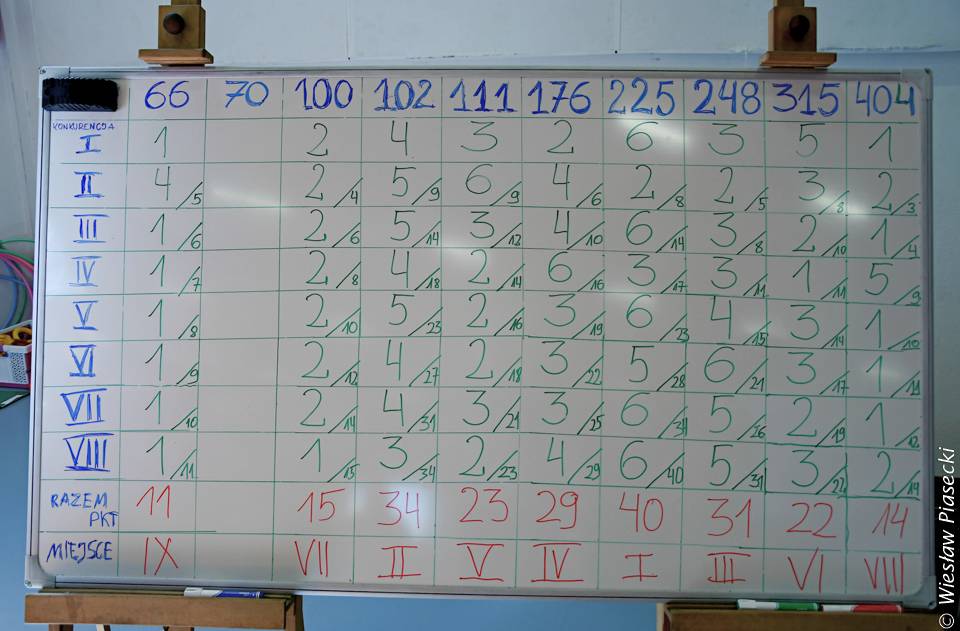 66 70 100 102 111 176 225 248 315 404
KONKURENCJA
I 1 2 4 3 2 6 3 5 1
II 4/5 2/4 5/9 6/9 4/6 2/8 2/5 3/8 2/3
III 1/6 2/6 5/14 3/12 4/10 6/14 3/8 2/10 1/4
IV 1/7 2/8 4/18 2/14 6/16 3/17 3/11 1/11 5/9
V 1/8 2/10 5/23 2/16 3/19 6/23 4/15 3/14 1/10
VI 1/9 2/12 4/27 2/18 3/22 5/28 6/21 3/17 1/11
VII 1/10 2/14 4/31 3/21 3/25 6/34 5/26 2/19 1/12
VIII 1/11 1/15 3/34 2/23 4/29 6/40 5/31 3/22 2/14
RAZEM 11 15 34 23 29 40 31 22 14
PKT
MIEJSCE IX VII II V IV I III VI VIII
© Wiesław Piasecki